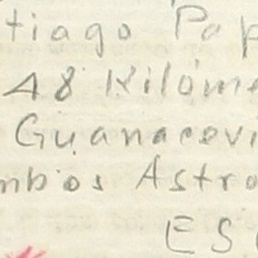 tiago Pap
48 Kilóme
Guanacevi
mbios Astro
ESC